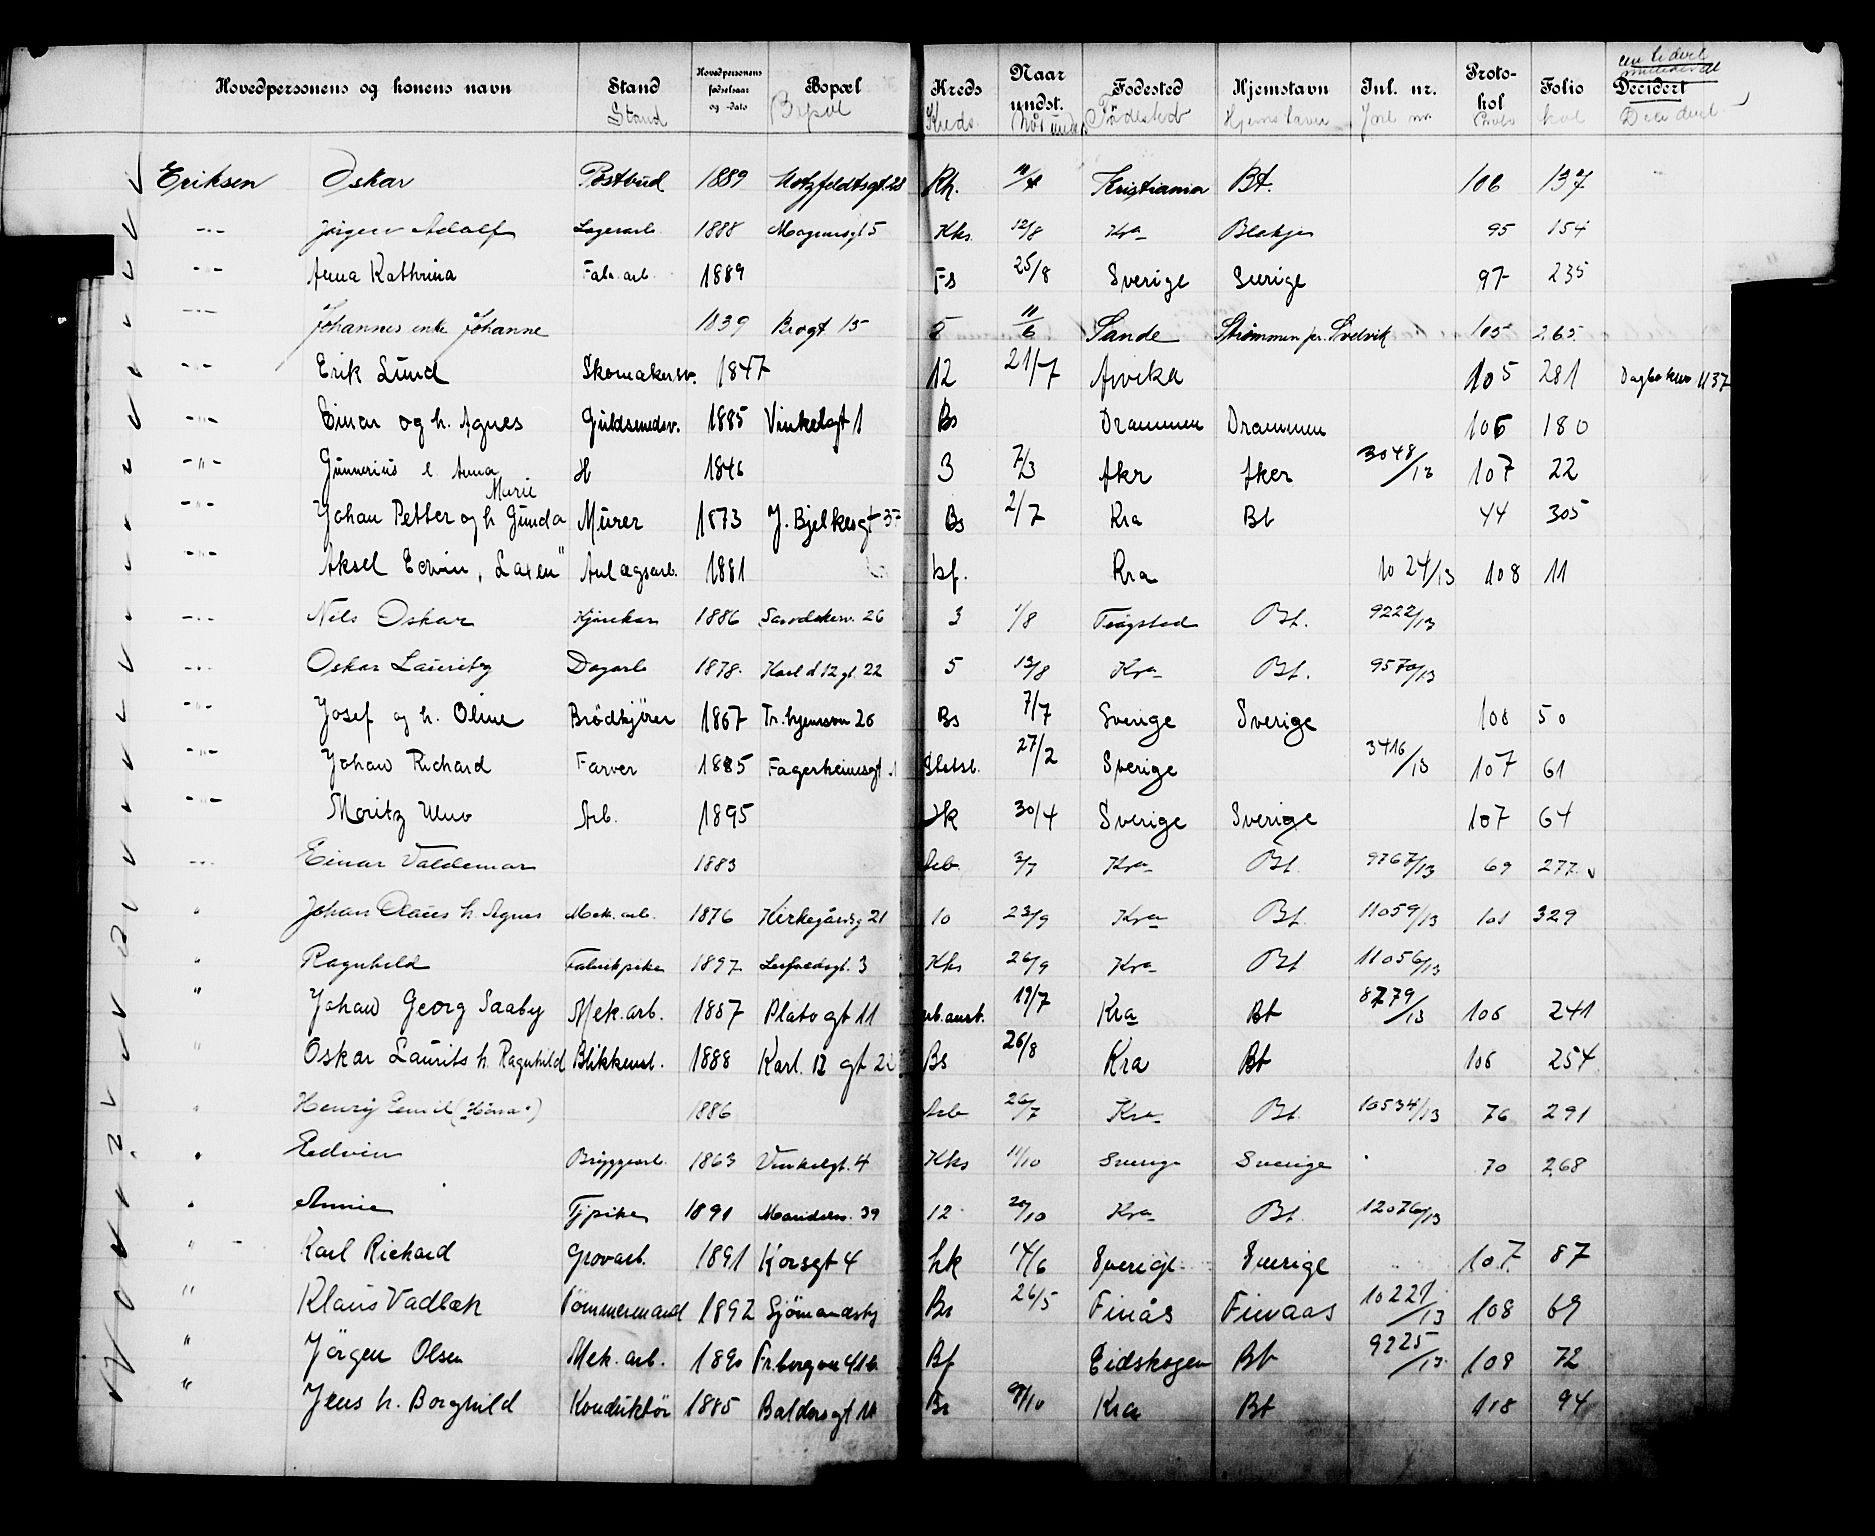 Hovedpersonens og konens navn Stand Hovedpersonens fødselsaar og -dato Bopæl Kreds Naar undst. Fødested Hjemstavn Jnl. nr. Protokol Folio Decidert
Stand Bopæl Kreds Når unds. Födested Hjemstavn Jnl nr
Eriksen Oskar Postbud 1889 Motzfeldtsgt. 28 Rh. 11/4 Kristiania Bt. 106 137
-"- Jörgen Adolf Lagerarb. 1888 Magnusgt 5 Kks 12/8 Kra Blakjer 95 154
-"- Anna Kathrina Fab. arb. 1889 Fs 25/8 Sverige Sverige 97 235
-"- Johannes enke Johanne 1839 Brogt 15 5 11/6 Sande Strömmen pr. Svelvik 105 265
-"- Erik Lund Skomakersv. 1847 12 21/7 Arvika 105 281 Dagbokus 1137
-"- Einar og h. Agnes Guldsmedsv. 1885 Vinkelgt 1 Bs Drammen Drammen 106 180
-"- Gunnerius e. Anna H 1846 3 7/3 Aker Aker 3048/13 107 22
-"- Johan Petter og h Gunda Marie Murer 1873 J. Bjelkesgt 37 Bs 2/7 Kra Bt 44 305
-"- Aksel Edvin, "Laxen" Anlægsarb. 1881 bf. Kra 1024/13 108 11
-"- Nils Oskar Kjörekar 1886 26 3 1/8 Trögstad Bt. 9222/13
-"- Oskar Lauritz Dagarb 1878. Karl d 12 gt. 22 5 13/8 Kra Bt. 9570/13
-"- Josef og h. Oline Brödkjörer 1867 Tr.hjemsvn 26 Bs 7/7 Sverige Sverige 108 50
-"- Johan Richard Farver 1885 Fagerheimsgt. 1 27/2 Sverige 3416/13 107 61
-"- Moritz Uluv Arb. 1895 30/4 Sverige Sverige 107 64
-"- Einar Valdemar 1883 Arb 2/7 Kra Bt. 9767/13 69 277.
" Johan Olaus h. Agnes Mek. arb. 1876 Kirkegårdsg 21 10 23/9 Kra Bt. 11059/13 101 329
" Ragnhild Fabrikpike 1897 Leifsaldsgt. 3 Kks 26/9 Kra Bt 11056/13
" Johan Georg Saaby Mek. arb. 1887 Platogt 11 arb.anst. 19/7 Kra Bt 8779/13 106 241
" Oskar Laurits h. Ragnhild Blikkensl. 1888 Karl. 12 gt 22 Bs 26/8 Kra Bt 106 254
" Henrij Emil ("Höna") 1886 Arb 26/7 Kra Bt. 10534/13 76 291
" Edvin Bryggearb. 1863 Vinkelgt. 4 Kks 11/10 Sverige Sverige 70 268
" Annie Tj.pike 1891 Maridalsv. 39 12 20/10 Kra Bt. 12076/13
" Karl Richard Grovarb. 1891 Korsgt 4 hk 14/6 Sverige Sverige 107 87
" Klaus Vadbæk Tömmermand 1892 Sjömandshj Bs 26/5 Finås Finaas 10227/13 108 69
" Jörgen Olsen Mek. arb. 1890 Fr.borgvn 41 b Bf Eidskogen Bt 9225/13 108 72
" Jens h. Borghild Konduktör 1885 Baldersgt 11 Bs 9/10 Kra Bt 108 94